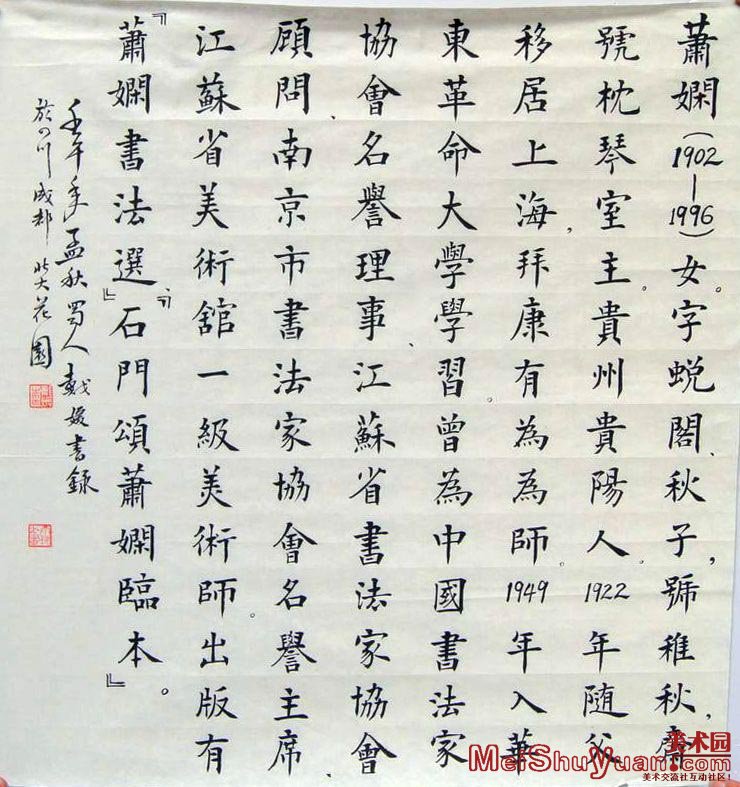 蕭嫻(1902—1996)女。字蜕閣、秋子,號稚秋,齋
號枕琴室主。貴州貴陽人。1922年随父
移居上海,拜康有為為師。1949年入華
東革命大學學習。曾為中國書法家
協會名譽理事、江蘇省書法家協會
顧問、南京市書法家協會名譽主席、
江蘇省美術館一級美術師。出版有
『蕭嫻書法選』、『石門頌蕭嫻臨本』。
壬午年孟秋蜀人戴媛書錄
於四川成都北大花園
美术园
MeiShuYuan.com
美术交流社互动社区!